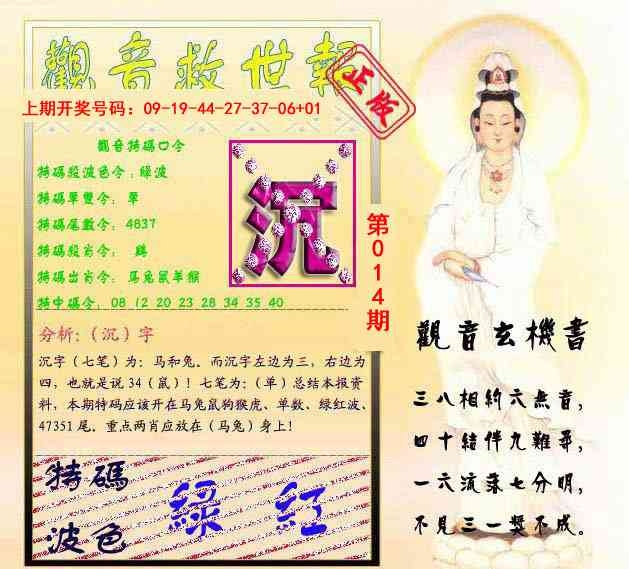 觀音救世報
正版
上期开奖号码：09-19-44-27-37-06+01
觀音特碼口令
特碼殺波色令：綠波
特碼單雙令： 單
特碼尾數令： 4837
特碼殺肖令： 鷄
特碼出肖令： 馬兔鼠羊猴
特中碼令： 08 12 20 23 28 34 35 40
沉
第014期
分析:（沉）字
沉字（七笔）为：马和兔。而沉字左边为三，右边为
四，也就是说 34（鼠）！七笔为：(单）总结本报资
料，本期特码应该开在马兔鼠狗猴虎、单数、绿红波、
47351 尾。重点两肖应放在（马兔）身上！
特碼
波色
綠 紅
觀音玄機書
三八相約六無音，
四十結伴九難尋，
一六流落七分明，
不見三一獎不成。